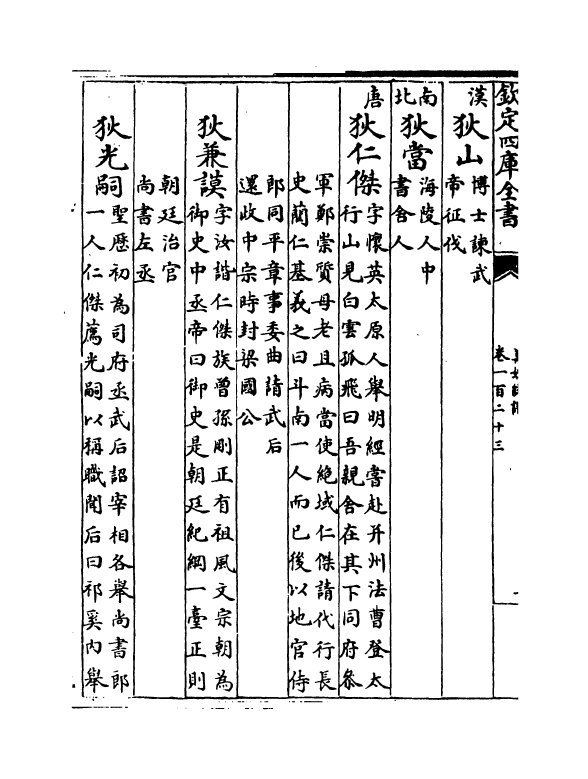 欽定四庫全書
卷一百二十三
漢
狄山
博士諫武
帝征伐
南北
狄當
海陵人中
書舍人
唐
狄仁傑
字懷英太原人舉明經嘗赴并州法曹登太
行山見白雲孤飛曰吾親舍在其下同府叅
軍鄭崇質母老且病當使絶域仁傑請代行長
史藺仁基義之曰斗南一人而已後以地官侍
郎同平章事委曲請武后
還政中宗時封梁國公
狄兼謨
字汝諧仁傑族曾孫剛正有祖風文宗朝為
御史中丞帝曰御史是朝廷紀綱一臺正則
朝廷治官
尚書左丞
狄光嗣
聖歷初為司府丞武后詔宰相各舉尚書郎
一人仁傑薦光嗣以稱職聞后曰祁奚内舉